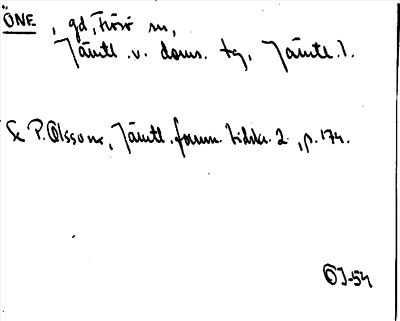 ÖNE, gd, Frösö sn,
Jämtl. v. doms. tg, Jämtl. l.
Se P. Olssons, Jämtl. fornm. tidskr. 2, p. 174.
OJ-54